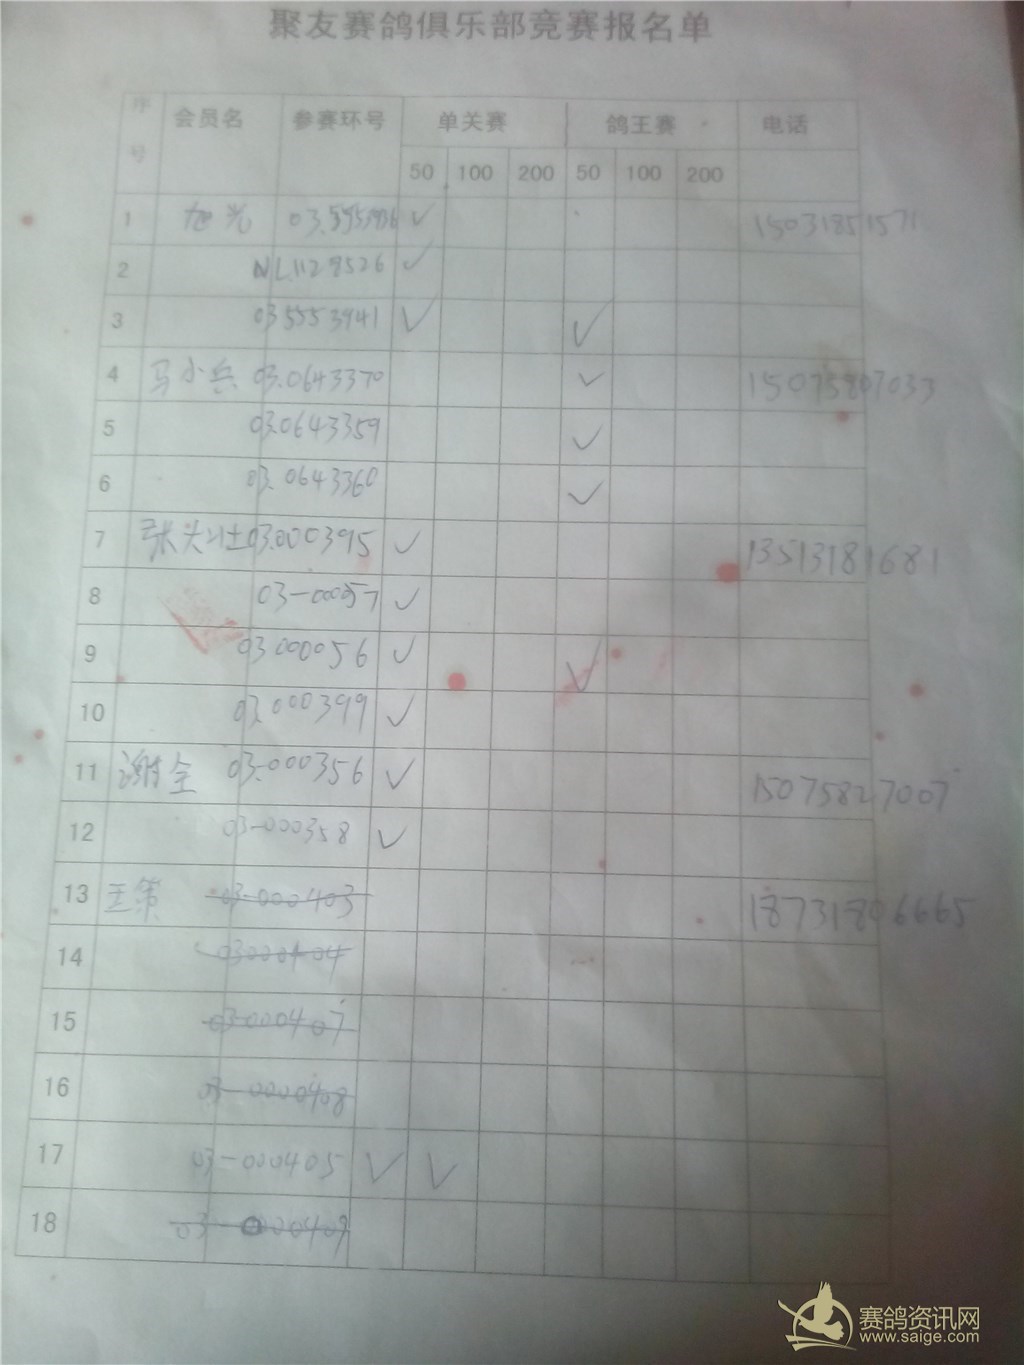 聚友赛鸽俱乐部竞赛报名单
序号 会员名 参赛环号 单关赛 鸽王赛 电话
50 100 200 50 100 200
1 旭光 ✓ 15031851571
2 NL1129526 ✓
3 035553941 ✓ ✓
4 马小兵 03.0643370 ✓ 15075807033
5 03.0643359 ✓
6 03.0643360 ✓
7 03.000395 ✓ 13513181681
8 03-00057 ✓
9 03.000056 ✓ ✓
10 03.000399 ✓
11 谢全 03.000356 ✓ 15075827007
12 03-000358 ✓
13 王策 03-000403 18731806665
14 03000404
15 03-000407
16 03-0000408
17 03-000405 ✓ ✓
18 03-0000409
赛鸽资讯网
www.saige.com